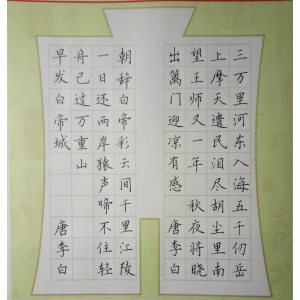 三万里河东入海五千仞岳
上摩天遗民泪尽胡尘里南
望王师又一年 秋夜将晓
出篱门迎凉有感 唐李白
朝辞白帝彩云间千里江陵
一日还两岸猿声啼不住轻
舟已过万重山
早发白帝城 唐李白